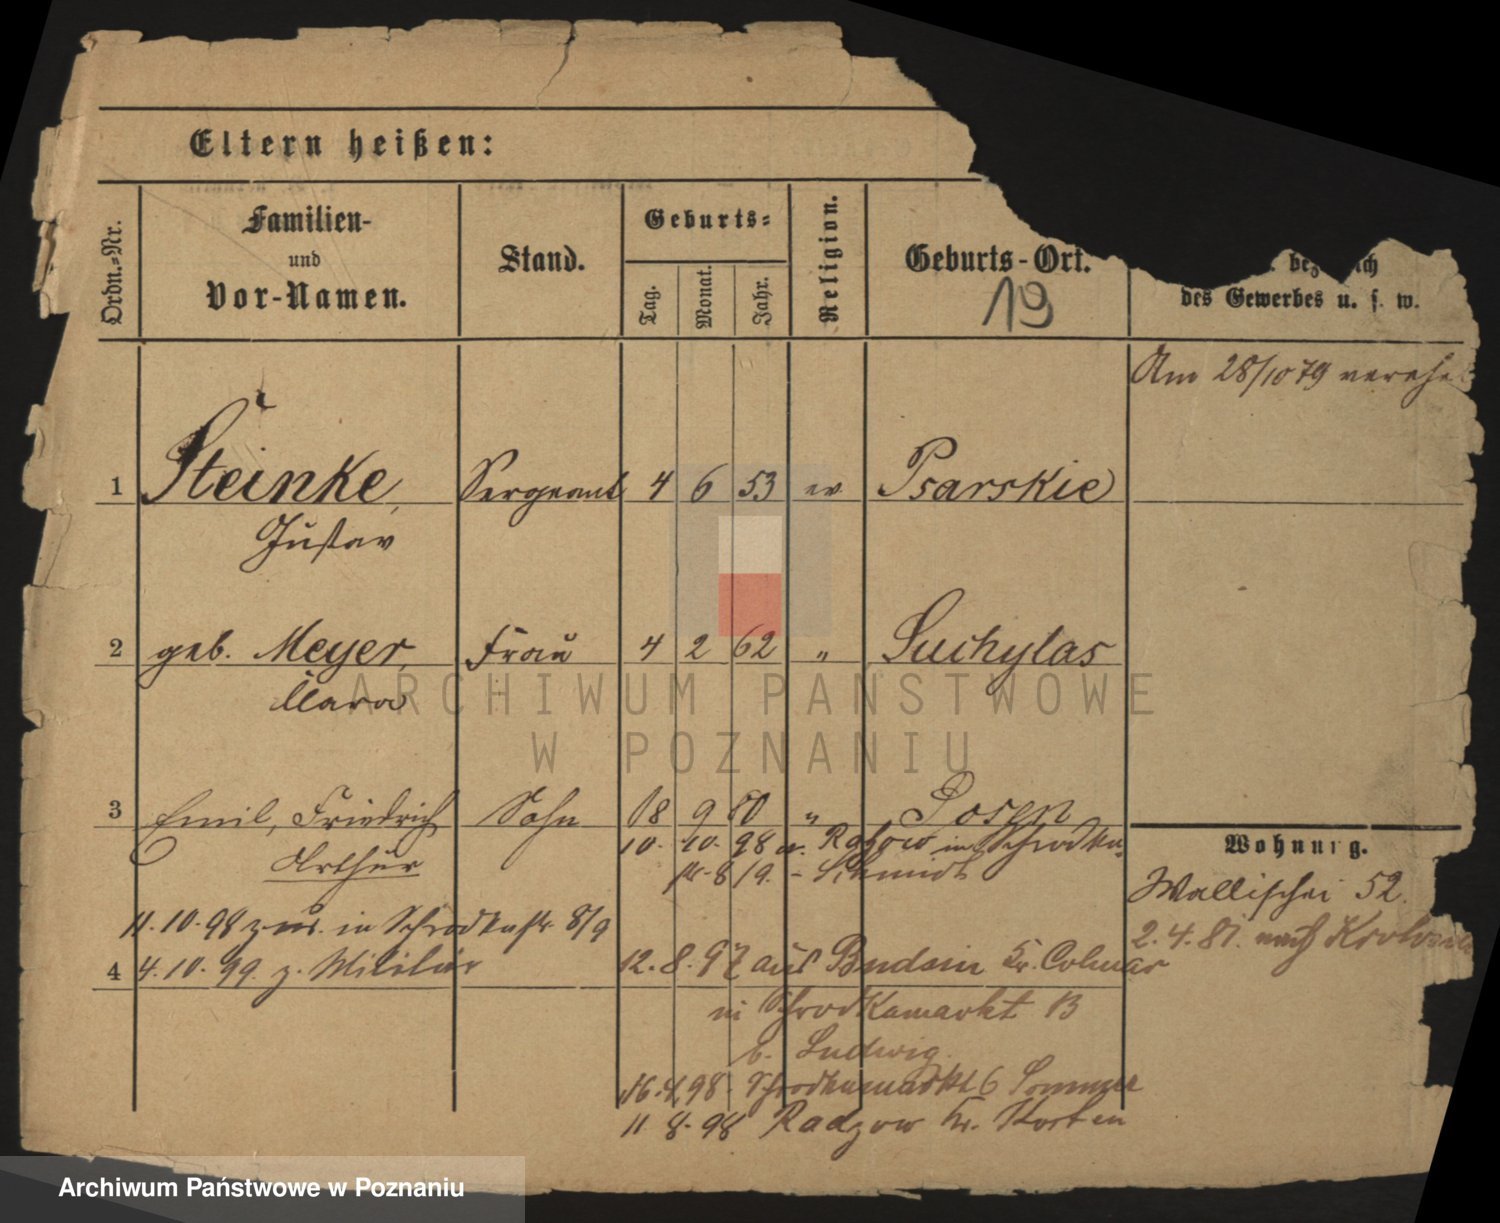 Eltern heißen:
Ordn.-Nr.
Familien-
und
Vor-Namen.
Stand.
Geburts-
Tag.
Monat.
Jahr.
Religion.
Geburts-Ort.
19
des Gewerbes u. s. w.
Am 28/10 79 verehe
1 Steinke, Sergeant 4 6 53 ev. Psarskie
Gustav
2 geb. Meyer, Frau 4 2 62 " Suchylas
Clara
3 Emil, Friedrich Sohn 18 9 80 " Posen
Arthur
10. 10. 98 in Schrodka-
Schmidt
Wohnung.
Wallischei 52.
2. 4. 81. nach
11. 10. 98 in Schrodkastr. 8/9
4 4. 10. 99. z. Militär
12. 8. 97 aus Budsin Kr. Colmar
in Schrodkamarkt 13
b. Ludwig.
16. 4. 98. Schrodkamarkt 6 Sommer
11. 8. 98 Kr. Kosten
ARCHIWUM PAŃSTWOWE
W POZNANIU
Archiwum Państwowe w Poznaniu